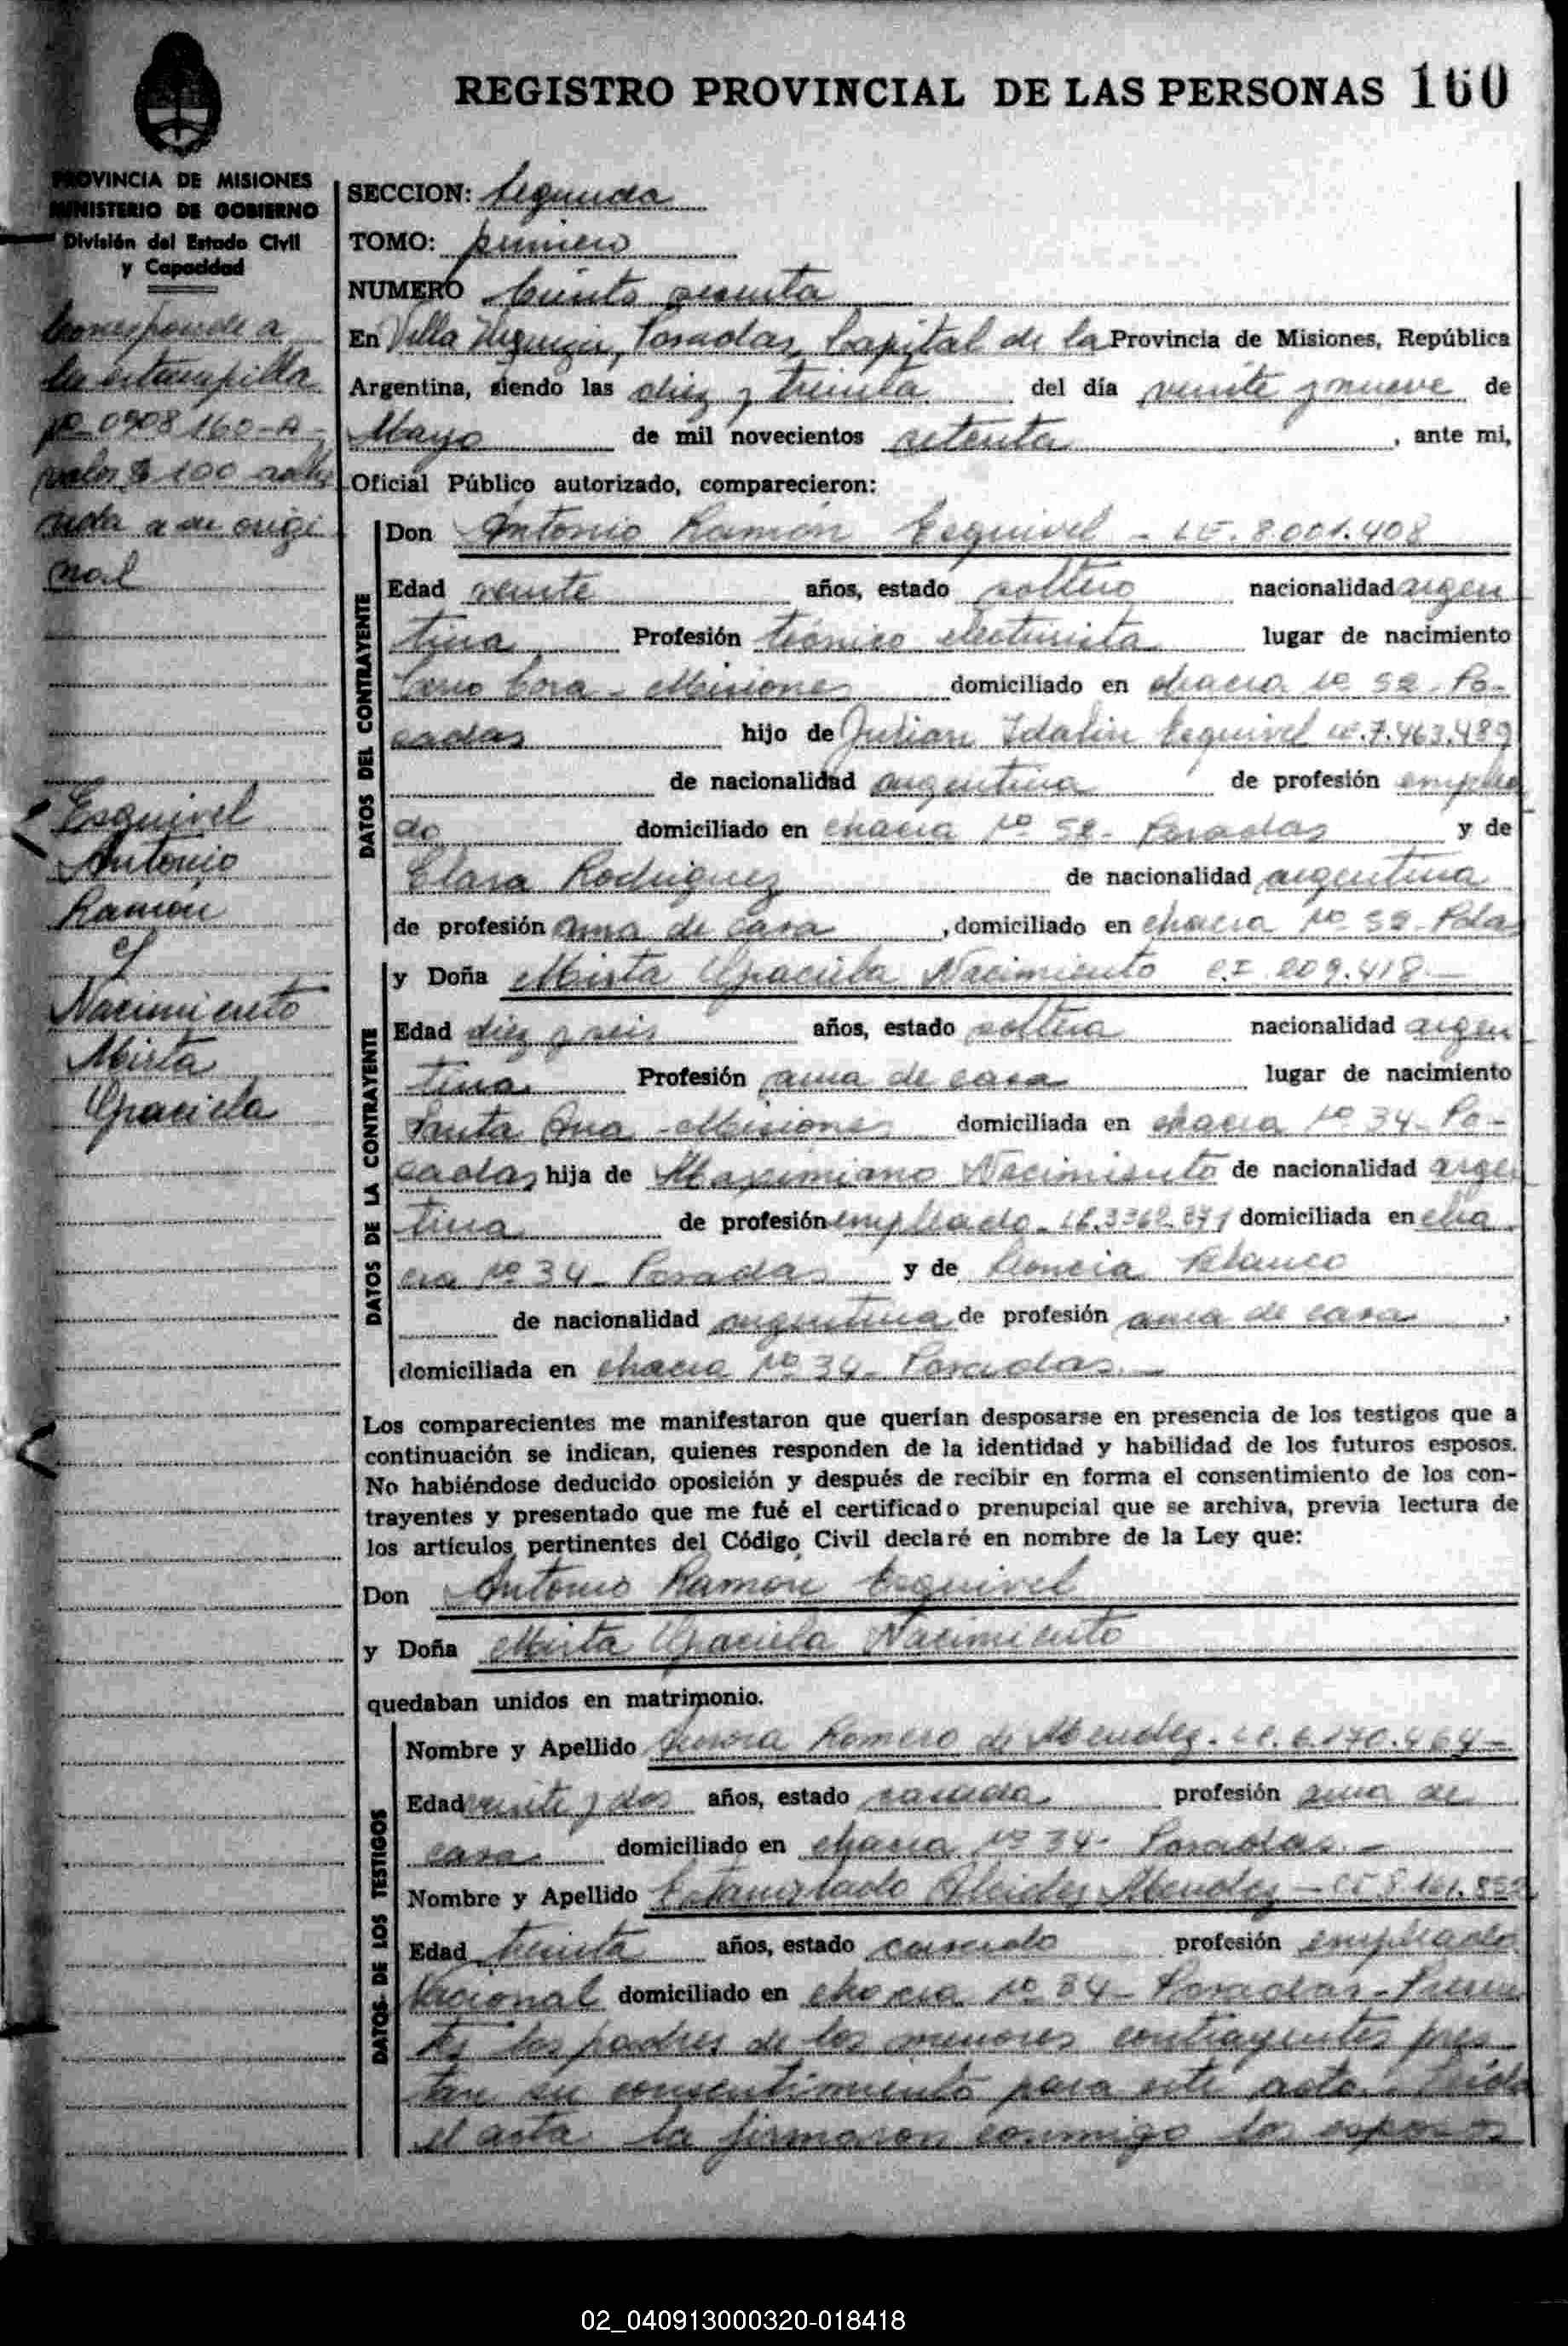 REGISTRO PROVINCIAL DE LAS PERSONAS 160
PROVINCIA DE MISIONES
MINISTERIO DE GOBIERNO
División del Estado Civil
y Capacidad
Corresponde a
la estampilla
Nº 0908160-A-
valor $ 100 adhe
rida a su origi
nal
Esquivel
Antonio
Ramon
y
Nacimiento
Mirta
Graciela
SECCION: Segunda
TOMO: primero
NUMERO Ciento sesenta
En Villa Urquiza, Posadas, Capital de la Provincia de Misiones, República
Argentina, siendo las diez y treinta del día veinte y nueve de
Mayo de mil novecientos setenta, ante mi,
Oficial Público autorizado, comparecieron:
DATOS DEL CONTRAYENTE
Don Antonio Ramón Esquivel - LE. 8.001.408
Edad veinte años, estado soltero nacionalidad argen
tina Profesión técnico electricista lugar de nacimiento
Cerro Cora - Misiones domiciliado en chacra Nº 52 - Po-
sadas hijo de Julian Idalin Esquivel LE. 7.463.489
de nacionalidad argentina de profesión emplea
do domiciliado en chacra Nº 52 - Posadas y de
Clara Rodriguez de nacionalidad argentina
de profesión ama de casa, domiciliado en chacra Nº 52 - Pdas
DATOS DE LA CONTRAYENTE
y Doña Mirta Graciela Nacimiento C.I. 209.418 -
Edad diez y seis años, estado soltera nacionalidad argen
tina Profesión ama de casa lugar de nacimiento
Santa Ana - Misiones domiciliada en chacra Nº 34 - Po-
sadas hija de Maximiano Nacimiento de nacionalidad argen
tina de profesión empleado - LE. 3362.871 domiciliada en cha
cra Nº 34 - Posadas y de Leoncia Blanco
de nacionalidad argentina de profesión ama de casa,
domiciliada en chacra Nº 34 - Posadas. -
Los comparecientes me manifestaron que querían desposarse en presencia de los testigos que a
continuación se indican, quienes responden de la identidad y habilidad de los futuros esposos.
No habiéndose deducido oposición y después de recibir en forma el consentimiento de los con-
trayentes y presentado que me fué el certificado prenupcial que se archiva, previa lectura de
los artículos pertinentes del Código Civil declaré en nombre de la Ley que:
Don Antonio Ramon Esquivel
y Doña Mirta Graciela Nacimiento
quedaban unidos en matrimonio.
DATOS DE LOS TESTIGOS
Nombre y Apellido Aurora Romero de Mendez - LC. 6.170.464 -
Edad veinte y dos años, estado casada profesión ama de
casa domiciliado en chacra Nº 34 - Posadas. -
Nombre y Apellido Estanislado Alcides Mendez - LE 8.161.
Edad treinta años, estado casado profesión empleado
Nacional domiciliado en chacra Nº 34 - Posadas - Presen
tes los padres de los menores contrayentes pres
tan su consentimiento para este acto. Leída
el acta la firmaron conmigo los esposos
02_040913000320-018418